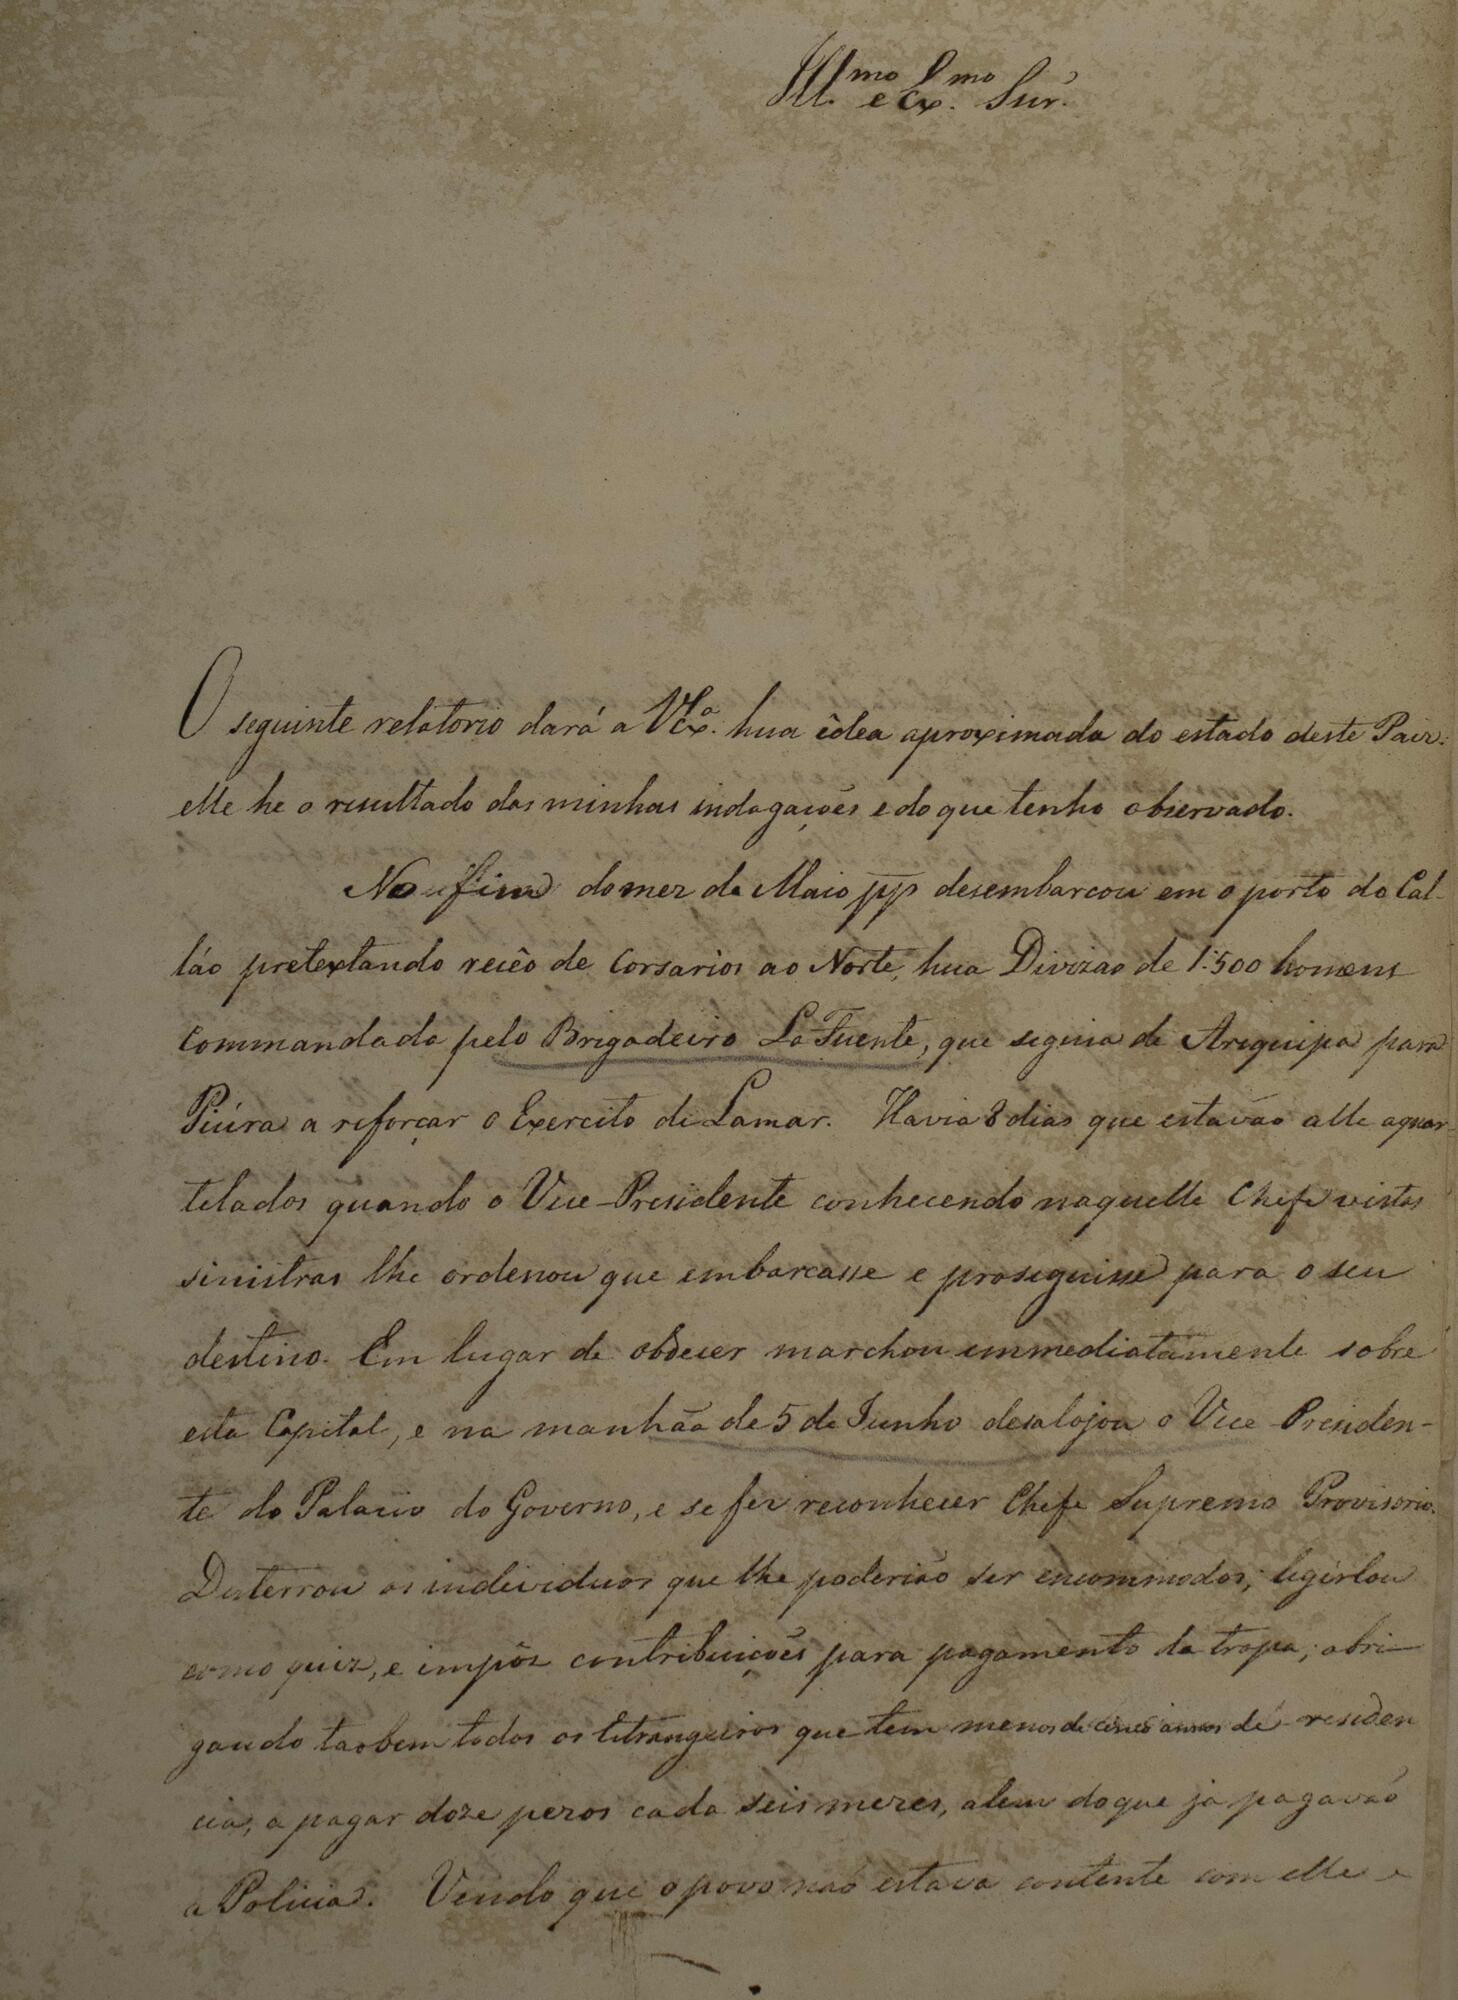 Ill.mo e Ex.mo Snr.
O seguinte relatorio dará a V.Ex.a hua îdea aproximada do estado deste Paiz:
elle he o resultado das minhas indagações e do que tenho observado.
No fim do mez de Maio pp desembarcou em o porto do Cal-
láo pretextando recêo de Corsarios ao Norte, hua Divizao de 1:500 homens
commandada pelo Brigadeiro La Fuente, que seguia de Arequipa para
Piúra a reforçar o Exercito de Lamar. Havia 8 dias que estavão alle aquar-
telados quando o Vice-Presidente conhecendo naquelle Chefe vistas
sinistras lhe ordenou que embarcasse e proseguisse para o seu
destino. Em lugar de obdecer marchou immediatamente sobre
esta Capital, e na manhãa de 5 de Junho desalojou o Vice Presiden-
te do Palacio do Governo, e se fez reconhecer Chefe Supremo Provisorio.
Desterrou os individuos que lhe poderião ser encommodos; legislou
como quiz, e impôz contribuições para pagamento da tropa; obri-
gando taobem todos os Estrangeiros que tem menos de cinco annos de residen
cia, a pagar doze pezos cada seis mezes, alem do que ja pagavão
a Policia. Vendo que o povo não estava contente com elle e